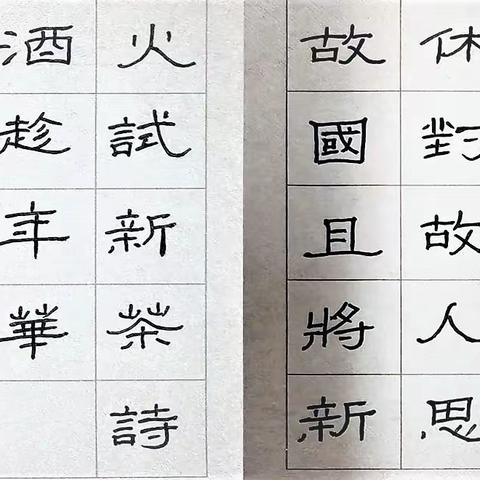 休對故人思
故國且將新
火試新茶詩
酒趁年華